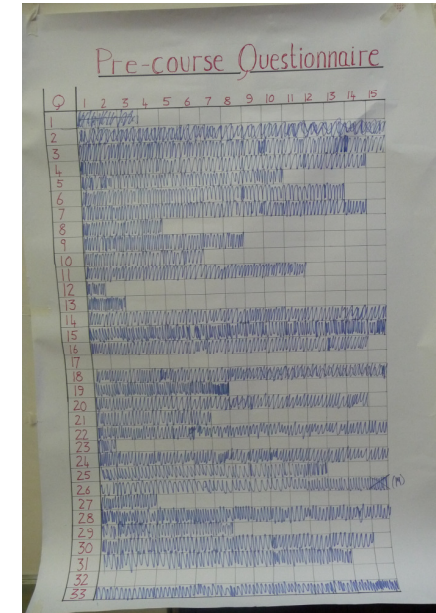 Pre-course Questionnaire
Q 1 2 3 4 5 6 7 8 9 10 11 12 13 14 15
1
2
3
4
5
6
7
8
9
10
11
12
13
14
15
16
17
18
19
20
21
22
23
24
25
26 (M)
27
28
29
30
31
32
33